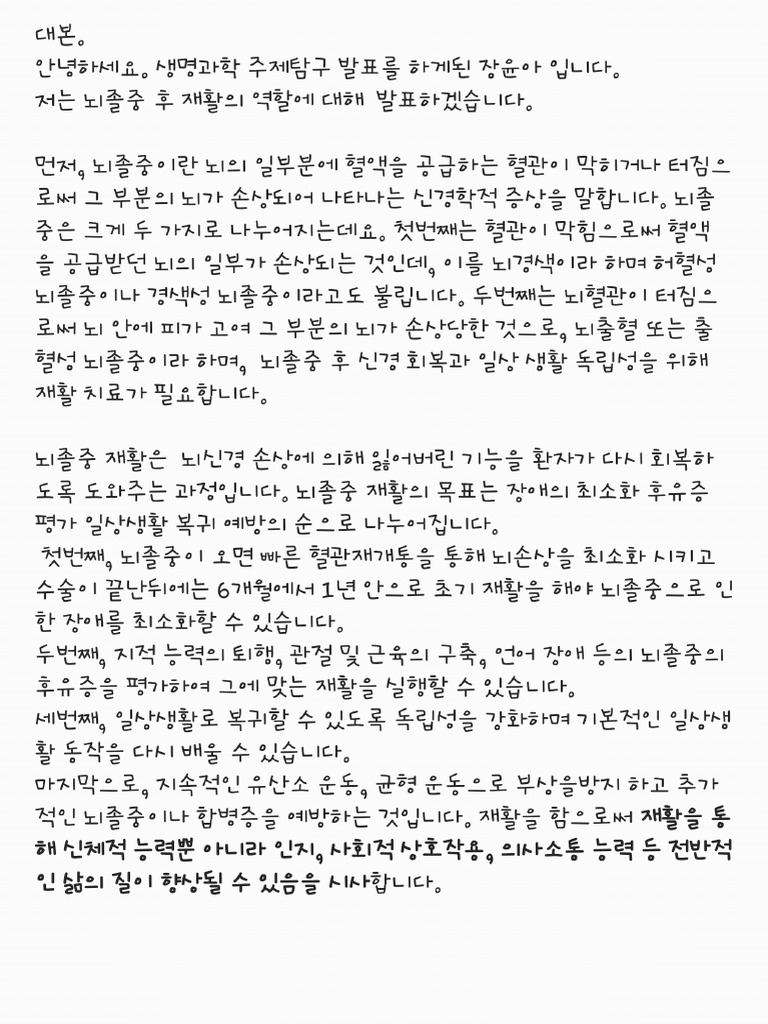 대본。
안녕하세요。 생명과학 주제탐구 발표를 하게된 장윤아 입니다。
저는 뇌졸중 후 재활의 역할에 대해 발표하겠습니다。
먼저, 뇌졸중이란 뇌의 일부분에 혈액을 공급하는 혈관이 막히거나 터짐으
로써 그 부분의 뇌가 손상되어 나타나는 신경학적 증상을 말합니다。 뇌졸
중은 크게 두 가지로 나누어지는데요。 첫번째는 혈관이 막힘으로써 혈액
을 공급받던 뇌의 일부가 손상되는 것인데, 이를 뇌경색이라 하며 허혈성
뇌졸중이나 경색성 뇌졸중이라고도 불립니다。 두번째는 뇌혈관이 터짐으
로써 뇌 안에 피가 고여 그 부분의 뇌가 손상당한 것으로, 뇌출혈 또는 출
혈성 뇌졸중이라 하며, 뇌졸중 후 신경 회복과 일상 생활 독립성을 위해
재활 치료가 필요합니다。
뇌졸중 재활은 뇌신경 손상에 의해 잃어버린 기능을 환자가 다시 회복하
도록 도와주는 과정입니다。 뇌졸중 재활의 목표는 장애의 최소화 후유증
평가 일상생활 복귀 예방의 순으로 나누어집니다。
첫번째, 뇌졸중이 오면 빠른 혈관재개통을 통해 뇌손상을 최소화 시키고
수술이 끝난뒤에는 6개월에서 1년 안으로 초기 재활을 해야 뇌졸중으로 인
한 장애를 최소화할 수 있습니다。
두번째, 지적 능력의 퇴행, 관절 및 근육의 구축, 언어 장애 등의 뇌졸중의
후유증을 평가하여 그에 맞는 재활을 실행할 수 있습니다。
세번째, 일상생활로 복귀할 수 있도록 독립성을 강화하며 기본적인 일상생
활 동작을 다시 배울 수 있습니다。
마지막으로, 지속적인 유산소 운동, 균형 운동으로 부상을방지 하고 추가
적인 뇌졸중이나 합병증을 예방하는 것입니다。 재활을 함으로써 재활을 통
해 신체적 능력뿐 아니라 인지, 사회적 상호작용, 의사소통 능력 등 전반적
인 삶의 질이 향상될 수 있음을 시사합니다。